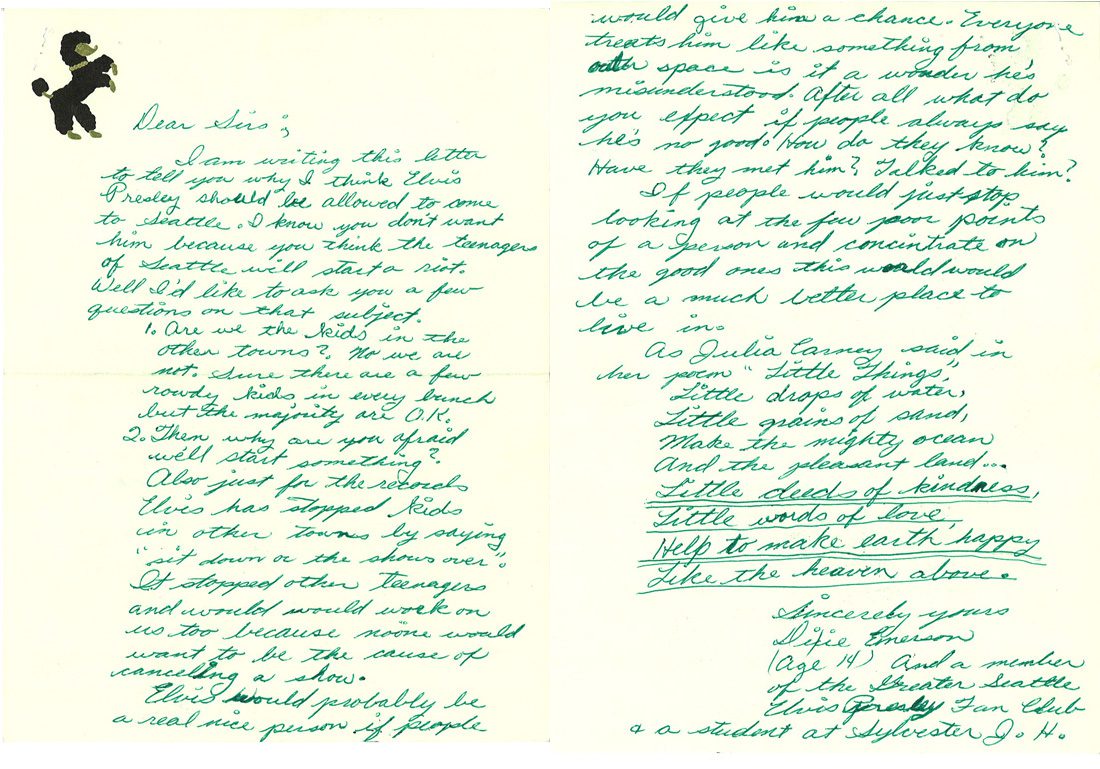 Dear Sirs:,
I am writing this letter
to tell you why I think Elvis
Presley should be allowed to come
to Seattle. I know you don't want
him because you think the teenagers
of Seattle will start a riot.
Well I'd like to ask you a few
questions on that subject.
1. Are we the kids in the
other towns? No we are
not. Sure there are a few
rowdy kids in every bunch
but the majority are O.K.
2. Then why are you afraid
we'll start something?
Also just for the records
Elvis has stopped kids
in other towns by saying
"sit down or the shows over".
It stopped other teenagers
and would would work on
us too because noone would
want to be the cause of
cancelling a show.
Elvis would probably be
a real nice person if people
would give him a chance. Everyone
treats him like something from
outer space is it a wonder he's
misunderstood. After all what do
you expect if people always say
he's no good. How do they know?
Have they met him? Talked to him?
If people would just stop
looking at the few poor points
of a person and concintrate on
the good ones this world would
be a much better place to
live in.
As Julia Carney said in
her poem "Little Things",
Little drops of water,
Little grains of sand,
Make the mighty ocean
And the pleasant land...
Little deeds of kindness,
Little words of love,
Help to make earth happy
Like the heaven above.
Sincerely yours
Dixie Emerson
(Age 14) And a member
of the Greater Seattle
Elvis Presley Fan Club
& a student at Sylvester J. H.